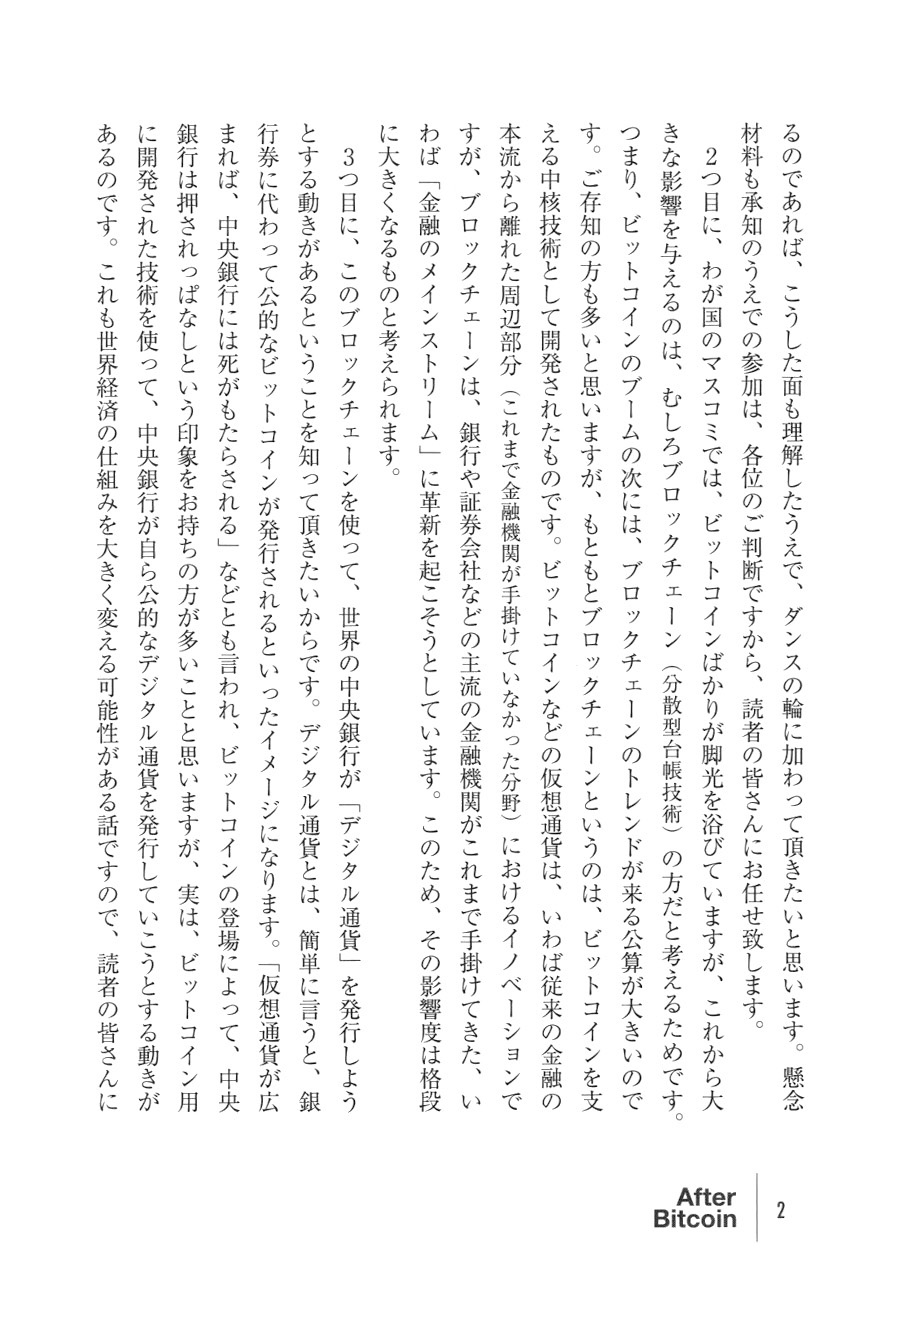 るのであれば、こうした面も理解したうえで、ダンスの輪に加わって頂きたいと思います。懸念
材料も承知のうえでの参加は、各位のご判断ですから、読者の皆さんにお任せ致します。
　2つ目に、わが国のマスコミでは、ビットコインばかりが脚光を浴びていますが、これから大
きな影響を与えるのは、むしろブロックチェーン（分散型台帳技術）の方だと考えるためです。
つまり、ビットコインのブームの次には、ブロックチェーンのトレンドが来る公算が大きいので
す。ご存知の方も多いと思いますが、もともとブロックチェーンというのは、ビットコインを支
える中核技術として開発されたものです。ビットコインなどの仮想通貨は、いわば従来の金融の
本流から離れた周辺部分（これまで金融機関が手掛けていなかった分野）におけるイノベーションで
すが、ブロックチェーンは、銀行や証券会社などの主流の金融機関がこれまで手掛けてきた、い
わば「金融のメインストリーム」に革新を起こそうとしています。このため、その影響度は格段
に大きくなるものと考えられます。
　3つ目に、このブロックチェーンを使って、世界の中央銀行が「デジタル通貨」を発行しよう
とする動きがあるということを知って頂きたいからです。デジタル通貨とは、簡単に言うと、銀
行券に代わって公的なビットコインが発行されるといったイメージになります。「仮想通貨が広
まれば、中央銀行には死がもたらされる」などとも言われ、ビットコインの登場によって、中央
銀行は押されっぱなしという印象をお持ちの方が多いことと思いますが、実は、ビットコイン用
に開発された技術を使って、中央銀行が自ら公的なデジタル通貨を発行していこうとする動きが
あるのです。これも世界経済の仕組みを大きく変える可能性がある話ですので、読者の皆さんに
After
Bitcoin
2